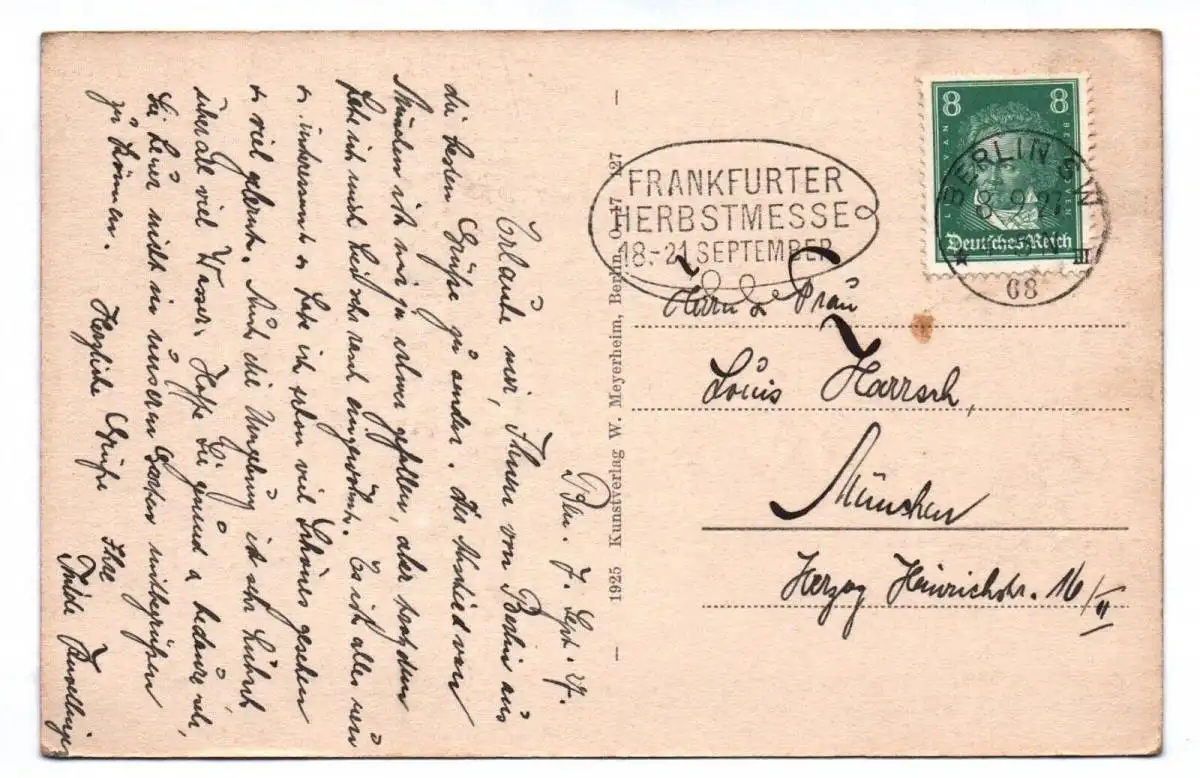 Bln. 7. Sept. 27.
Erlaube mir, Ihnen von Berlin aus
die besten Grüße zu senden. Der Abschied von
München ist mir ja schwer gefallen, aber trotzdem
habe ich mich hier schon eingewöhnt. Es ist alles neu
u. interessant u. habe ich schon viel Schönes gesehen
u. viel gelernt. Auch die Umgebung ist sehr hübsch
überall viel Wasser. Hoffe Sie gesund u. bedaure sehr,
Sie heuer nicht in unserem begrüßen
zu können. Herzliche Grüße Ihre
1925 Kunstverlag W. Meyerheim, Berlin O 17 127
FRANKFURTER
HERBSTMESSE
18.-21 SEPTEMBER
8 8
LUDWIG VAN BEETHOVEN
Deutsches Reich
BERLIN SW
8.9.27
68
Herrn u. Frau
Louis Harrsch,
München
Herzog Heinrichstr. 16/II